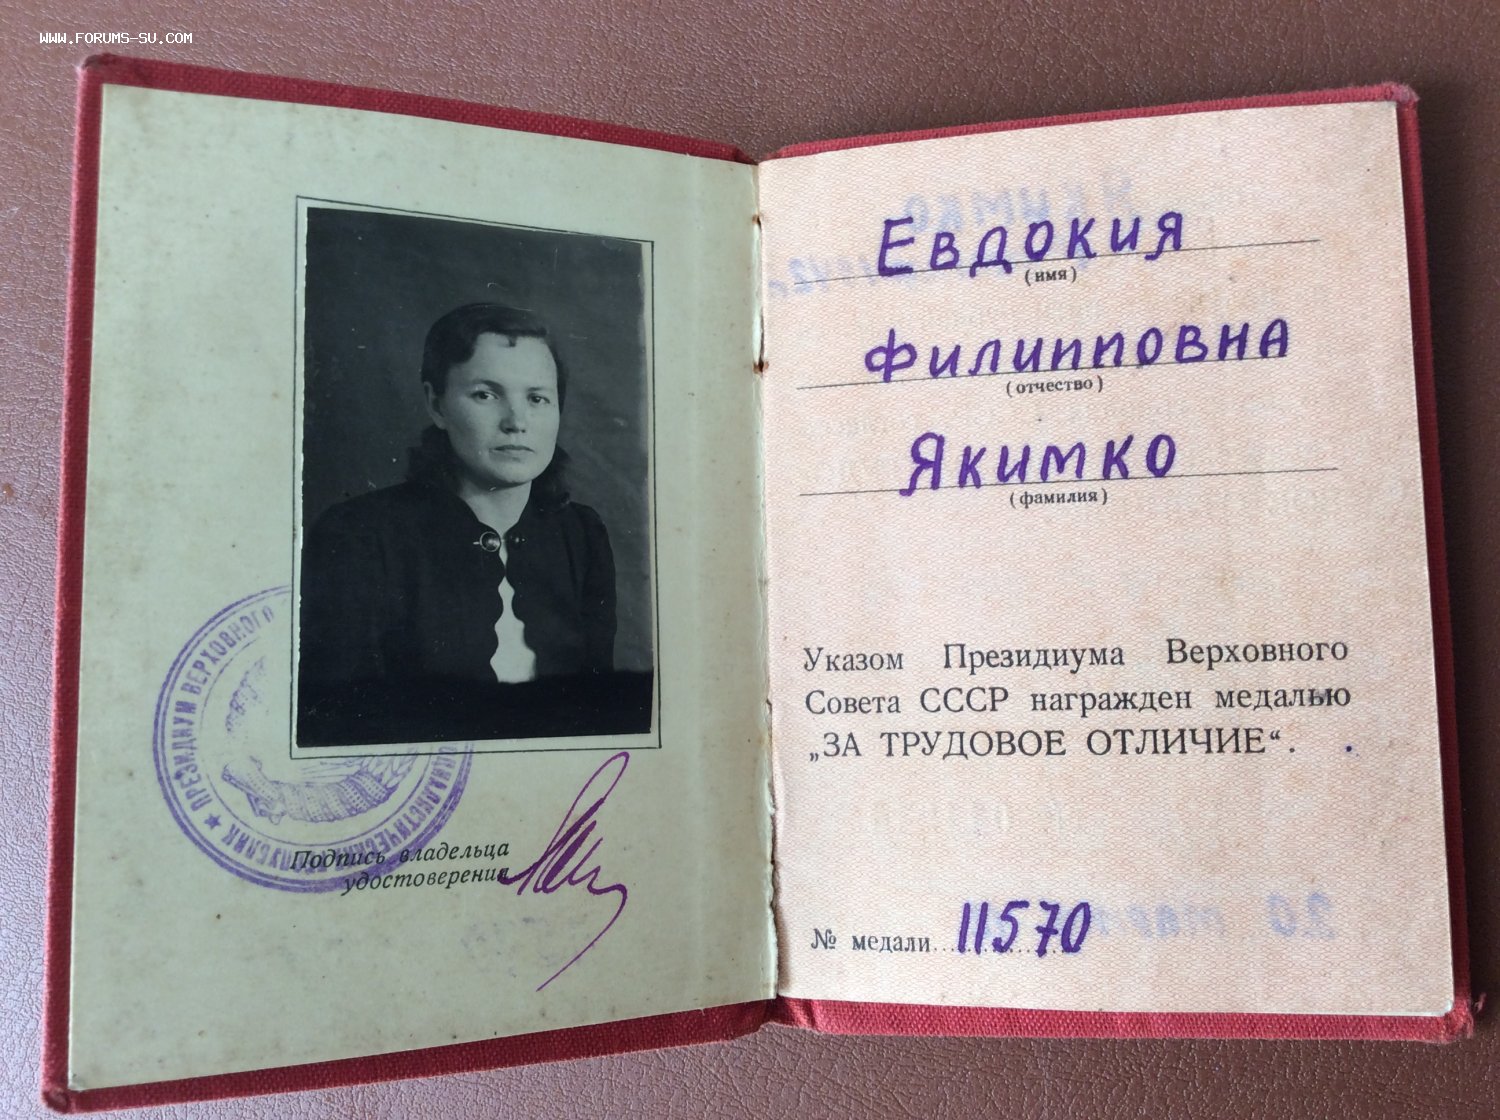 WWW.FORUMS-SU.COM
ПРЕЗИДИУМ ВЕРХОВНОГО
Подпись владельца
удостоверения
ЕВДОКИЯ
(имя)
ФИЛИППОВНА
(отчество)
ЯКИМКО
(фамилия)
Указом Президиума Верховного
Совета СССР награжден медалью
„ЗА ТРУДОВОЕ ОТЛИЧИЕ“.
№ медали 11570